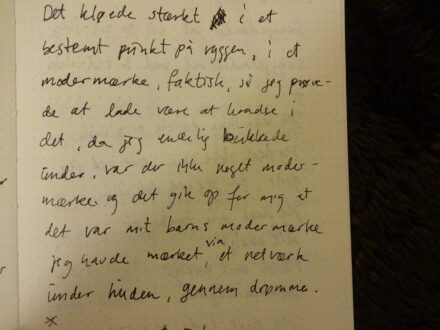 Det kløede stærkt i et
bestemt punkt på ryggen, i et
modermærke, faktisk, så jeg prøve-
de at lade være at kradse i
det, da jeg endelig bukkede
under, var der ikke noget moder-
mærke og det gik op for mig at
det var mit barns modermærke
jeg havde mærket, via et netværk
under huden, gennem drømme.
*